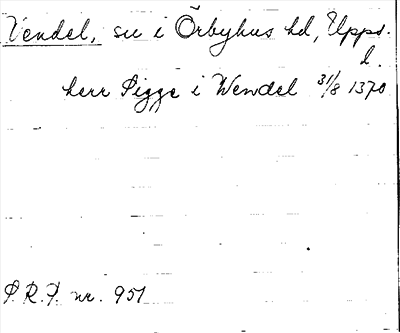 Vendel, sn i Örbyhus hd, Upps.
l.
herr Sigge i Wendel 31/8 1370
S.R.P. nr. 951